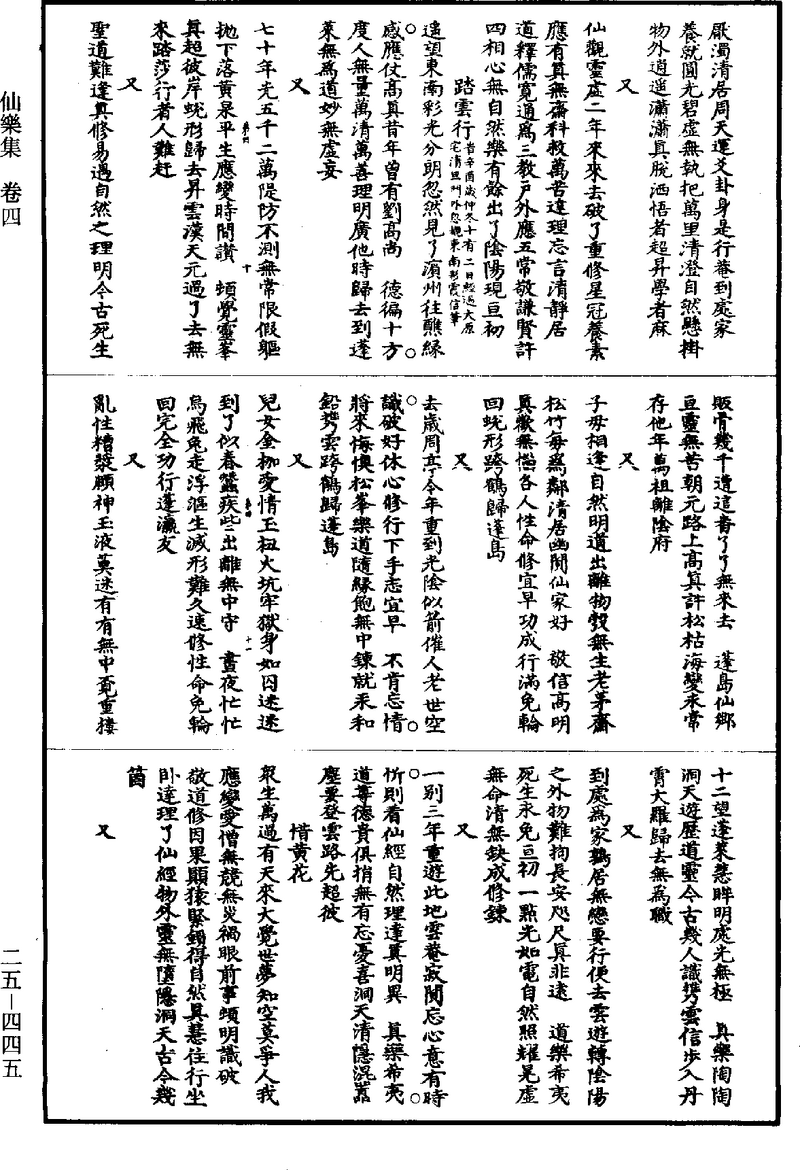 仙樂集　卷四
厭濁清居周天運爻卦身是行菴到處家
養就圓光碧虛無執把萬里清澄自然懸掛
物外逍遥瀟瀟真脫洒悟者超昇學者麻
又
仙觀靈虛二年來來去破了重修星冠養素
應有真無齋科救萬苦違理忘言清靜居
道釋儒寬通爲三教戶外應五常敬謙賢許
四相心無自然樂有餘出了陰陽現亘初
踏雲行
昔辛酉歲仲冬十有二日經過太原
宅清旦門外忽覩東南彩雲信筆
遥望東南彩光分明忽然見了濱州往醮緣
感應仗高真昔年曾有劉高尚　德徧十方
度人無量萬清萬善理明廣他時歸去到蓬
萊無爲道妙無虛妄
又
七十年光五千二萬隄防不測無常限假軀
拋下落黃泉平生應變時間讚　頓覺靈峯
真超彼岸蛻形歸去昇雲漢天元過了去無
來踏莎行者人難赶
又
聖道難逢真修易遇自然之理明今古死生
販骨幾千遭這番了了無來去　蓬島仙鄉
亘靈無苦朝元路上高真許松枯海變永常
存他年萬祖離陰府
又
子母相逢自然明道出離物殼無生老茅齋
松竹每爲鄰清居幽闃仙家好　敬信高明
真歡無惱各人性命修宜早功成行滿免輪
回蛻形跨鶴歸蓬島
又
去歲周亭今年重到光陰似箭催人老世空
識破好休心修行下手志宜早　不肯忘情
將來悔懊松峯樂道隨緣飽無中鍊就汞和
鉛㩦雲跨鶴歸蓬島
又
兒女金枷愛情玉杻火坑牢獄身如囚迷迷
到了似春蠶疾些出離無中守　晝夜忙忙
烏飛兔走浮漚生滅形難久速修性命免輪
回完全功行蓬瀛友
又
亂性糟漿頤神玉液莫迷有有無中覓重樓
十二望蓬萊慧眸明處光無極　真樂陶陶
洞天遊歷道靈今古幾人識㩦雲信步入丹
霄大羅歸去無爲職
又
到處爲家鶉居無戀要行便去雲遊轉陰陽
之外物難拘長安咫尺真非遠　道樂希夷
死生永免亘初一點光如電自然照耀晃虛
無命清無缺成修鍊
又
一別三年重遊此地雲菴寂闃忘心意有時
忻則看仙經自然理達真明異　真樂希夷
道尊德貴俱捎無有忘憂喜洞天清隱混囂
塵要登雲路先超彼
惜黃花
衆生萬過有天來大覺世夢知空莫爭人我
應變愛憎無競無災禍眼前事頓明識破
敬道修因果顯猿緊鎖得自然真慧住行坐
卧達理了仙經物外靈無墮隱洞天古今幾
箇
又
二五－四四五